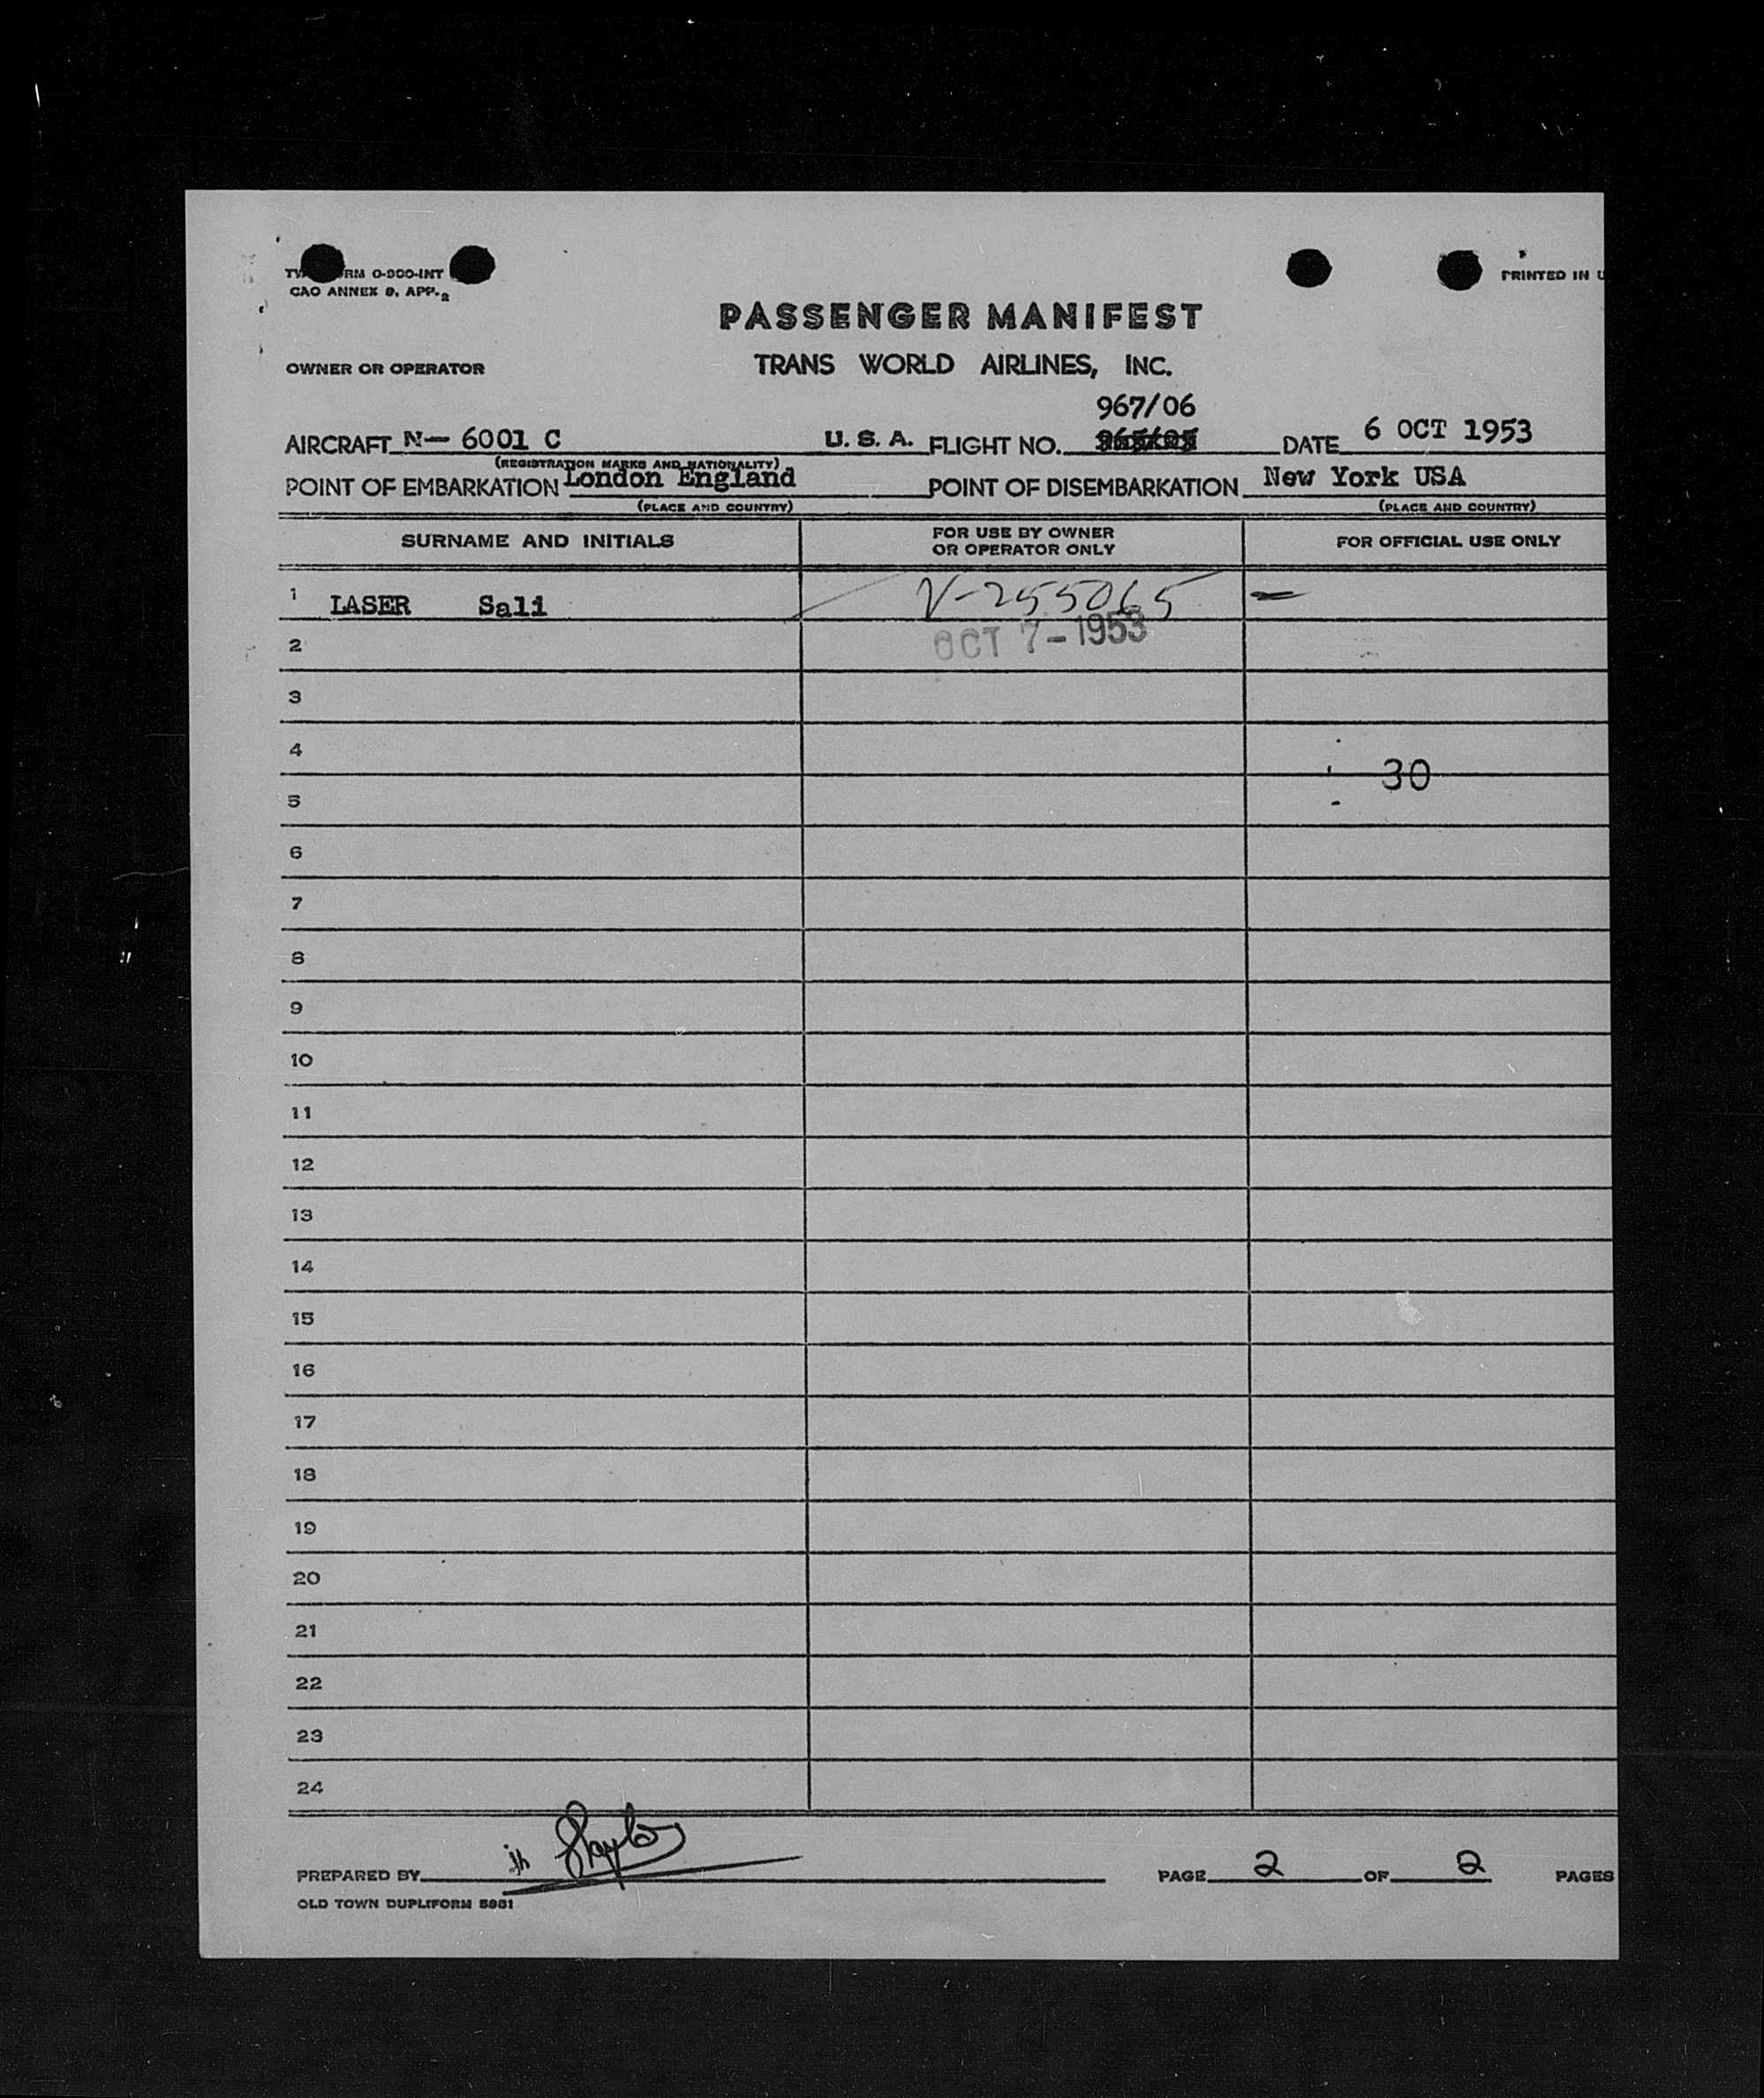 RM O-900-INT
PRINTED IN U
CAO ANNEX 9, APP. 2
PASSENGER MANIFEST
OWNER OR OPERATOR TRANS WORLD AIRLINES, INC.
967/06
AIRCRAFT N- 6001 C U. S. A. FLIGHT NO. DATE 6 OCT 1953
(REGISTRATION MARKS AND NATIONALITY)
POINT OF EMBARKATION London England POINT OF DISEMBARKATION New York USA
(PLACE AND COUNTRY) (PLACE AND COUNTRY)
SURNAME AND INITIALS FOR USE BY OWNER OR OPERATOR ONLY FOR OFFICIAL USE ONLY
1 LASER Sali V-255065 -
2 OCT 7-1953
3
4
30
5
6
7
8
9
10
11
12
13
14
15
16
17
18
19
20
21
22
23
24
PREPARED BY PAGE 2 OF 2 PAGES
OLD TOWN DUPLIFORM